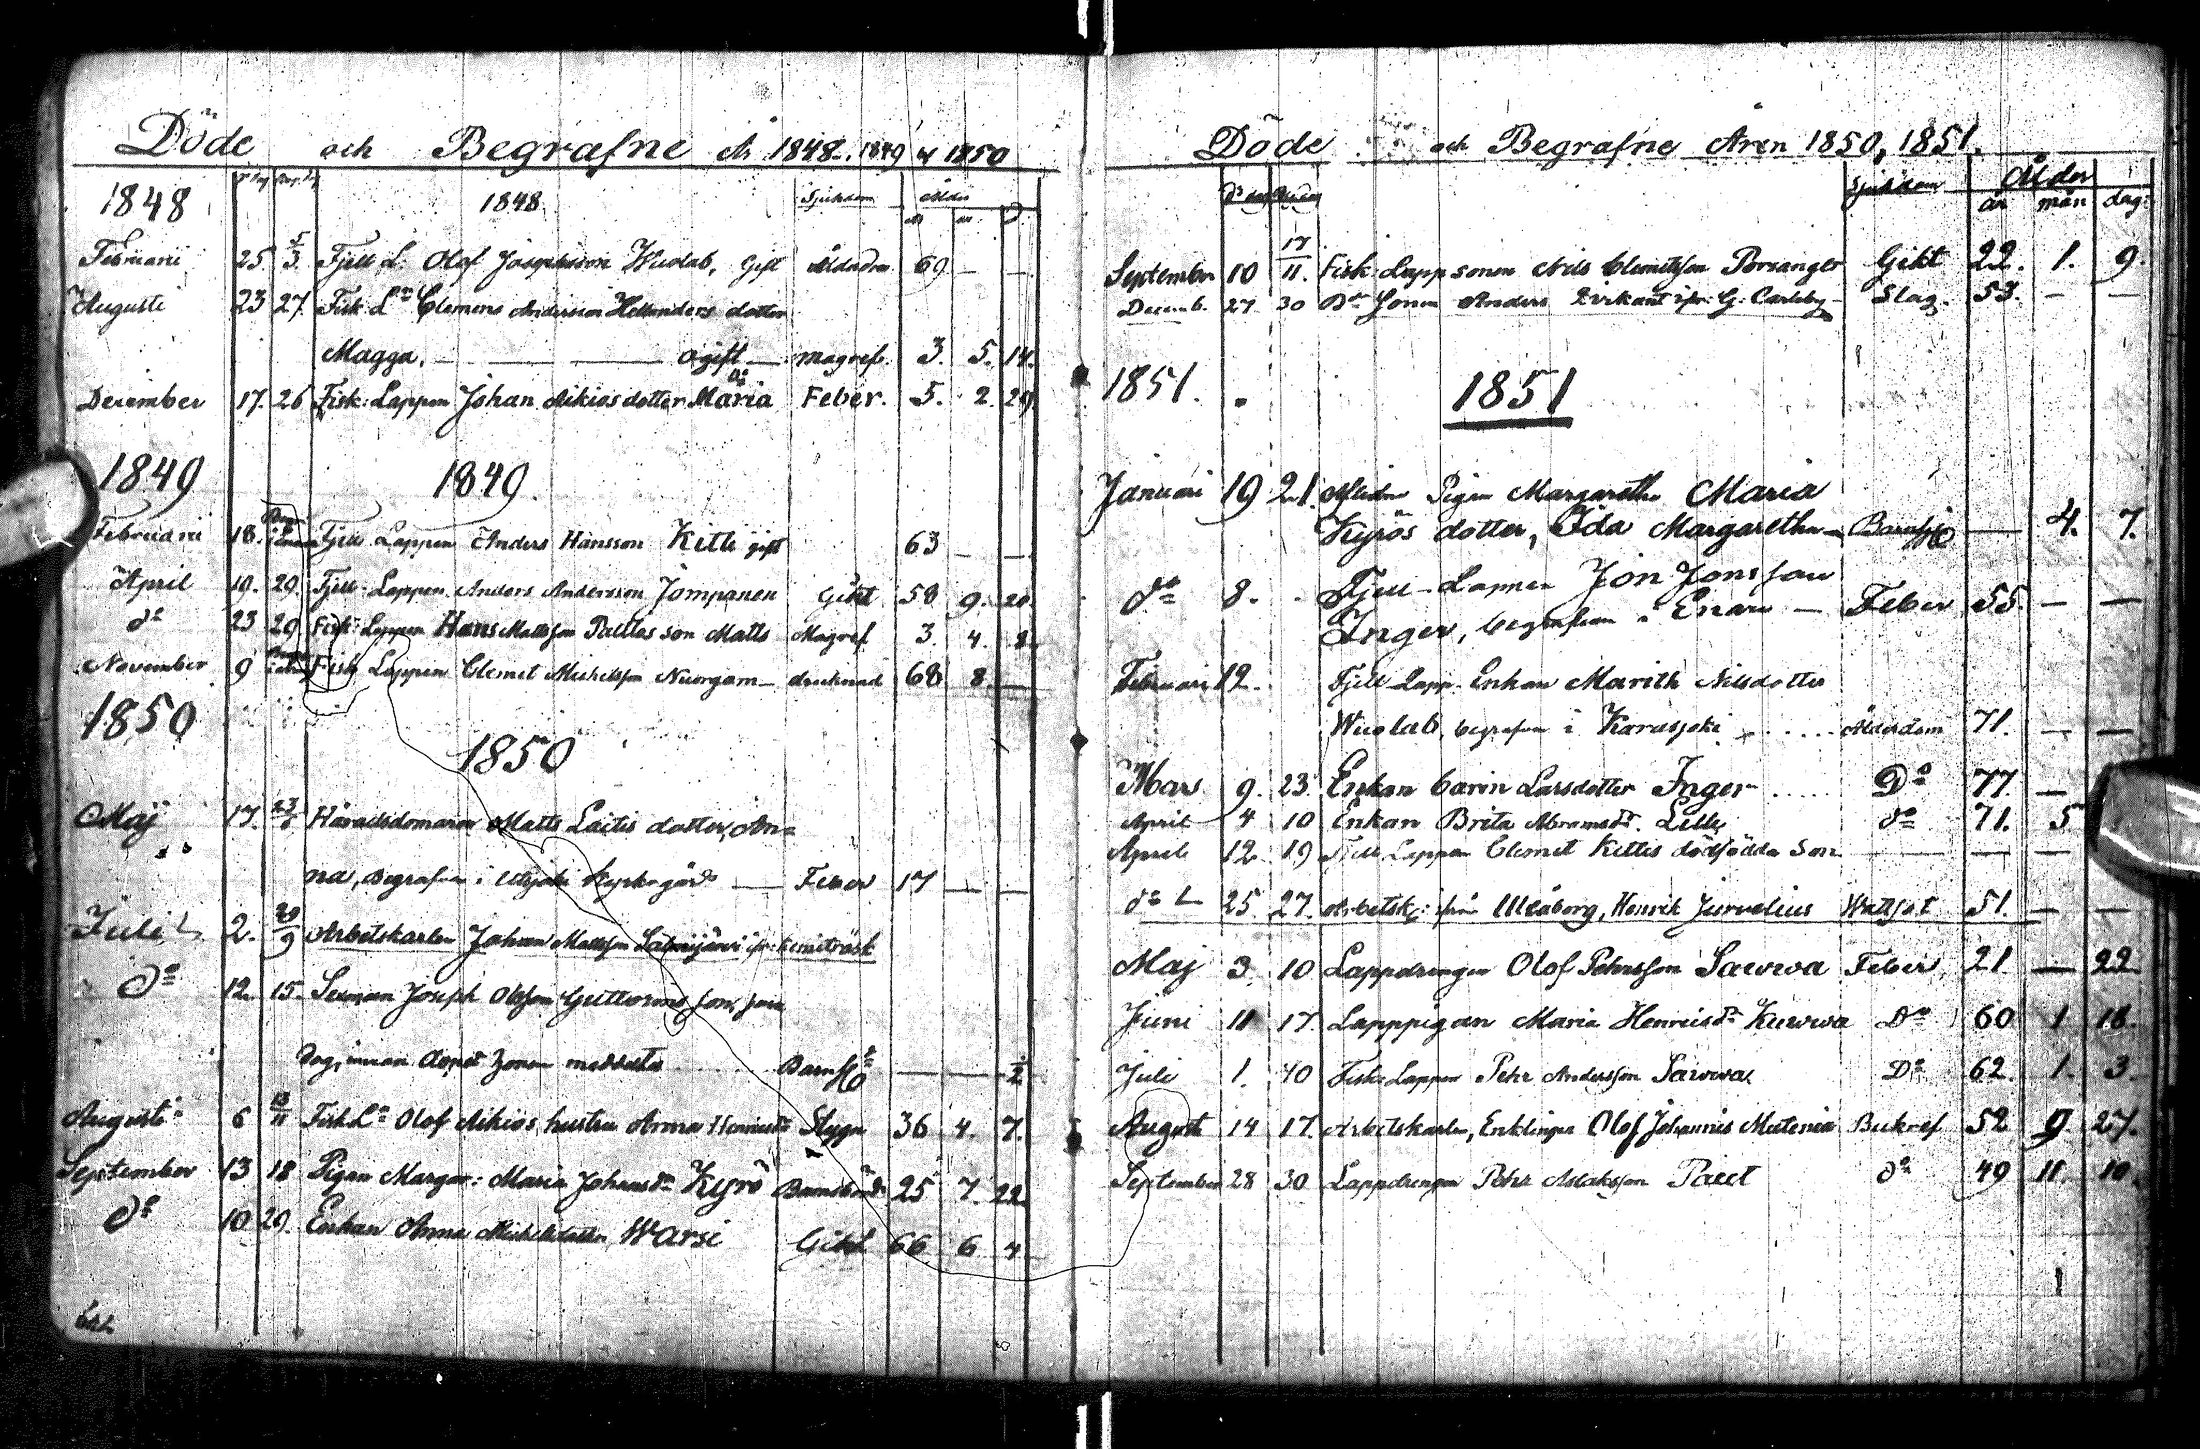 Döde och Begrafne År 1848, 1849 o 1850
1848 1848. Sjukdom Ålder
Februarii 25. 5/3. Fjell L. Olof Josephsson Wuolab, Gift Ålderdom 69 — —
Augusti 23 27. Fisk. L:n Clemens Andersson Hellanders dotter
Magga, — ogift — magref. 3. 5. 14.
December 17. 26 Fisk: Lappen Johan Aikios dotter Maria D:o Feber. 5. 2. 29
1849 1849.
Februarii 18. Fjell Lappen Anders Hansson Kitti gift 63 — —
April 19. 29. Fjell-Lappen Anders Andersson Jompanen Gikt 58 9. 20.
d:o 23 29 Fisk: Lappen Hans Mattsson Palttos son Matts Magref 3. 4. 8.
November 9 Fisk Lappen Clemet Michelsson Nuorgam — drucknad 68 8. —
1850
1850
Maj 17. 23/6 Häradsdomaren Matts Laitis dotter, An-
na, Begrafven i Utsjoki kyrkogård — Feber 17 — —
Juli 2. 29/9 Arbetskarlen Johan Mattsson Salmijärvi ifr: Kemiträsk
D:o 12. 15. Sexman Joseph Olofsson Guttorms son, som
dog, innan dopet honom meddeltes Barnsj:o — — 1/2
Augusti 6 18/11 Fisk L:n Olof Aikios hustru Anna Henricsd:r Slag 36 4. 7.
September 13 18 Pigan Margar: Maria Johansd:r Kyrö Barnsbörd 25 7. 22.
D:o 10 29. Enkan Anna Michelsdotter Warsi Gikt 66 6 4
Döde och Begrafne Åren 1850, 1851.
Sjukdom Ålder
år mån dag:
September 10 17/11. Fisk: Lapp sonen Nils Clemetsson Porsanger Gikt 22. 1. 9.
Decemb. 27 30 D:o Sonen Anders Kirkant ifr: G: Carleby — Slag. 53. — —
1851. 1851
Januari 19 21. Aflidna Pigan Margaretha Maria
Kyrös dotter, Ida Margaretha — Barnsj:o — 4. 7.
d:o 8. Fjell-Lappen Jon Jonsson
Inger, begrafven i Enare — Feber 55. — —
Februari 12. Fjell Lapp. Enkan Marith Nilsdotter
Wuolab, begrafven i Karasjoki Ålderdom 71. — —
Mars 9. 23. Enkan Carin Larsdotter Inger D:o 77. —
April 4 10 Enkan Brita Abramsd:r. Lille d:o 71. 5
April 12. 19 Fjell Lappen Clemet Kittis dödfödda Son — — —
d:o 25. 27. Arbetsk: ifrån Uleåborg, Henrik Jurvelius Wattsot 51. — —
Maj 3. 10 Lappdrängen Olof Pehrsson Sawwa Feber, 21. — 22
Juni 11 17. Lapppigan Maria Henricsd:r Kuwwa D:o 60 1 18.
Juli 1. 10 Fisk: Lappen Pehr Andersson Sawwa D:o 62. 1. 3
August 14 17. Arbetskarlen, Enklingen Olof Johannis Mustenia Bukref 52 9 27.
September 28 30 Lappdrängen Pehr Aslaksson Paut d:o 49 11. 10.